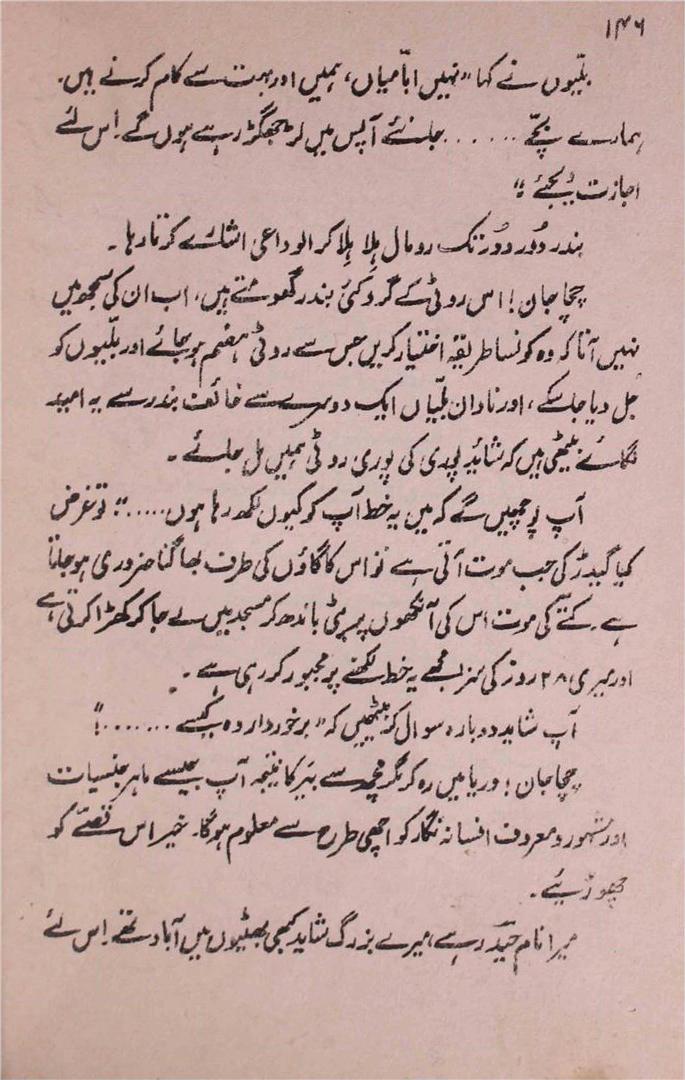 ۱۴۶
بلّیوں نے کہا ”نہیں ابّا میاں، ہمیں اور بہت سے کام کرنے ہیں۔
ہمارے بچّے ...... جانئے آپس میں لڑ جھگڑ رہے ہوں گے اِس لئے
اجازت دیجئے“
بندر دُور دوُر تک رومال ہِلا ہِلا کر الوداعی اشارے کرتا رہا۔
چچا جان! اس روٹی کے گرد کئی بندر گھومتے ہیں، اب ان کی سمجھ میں
نہیں آتا کہ وہ کونسا طریقہ اختیار کریں جس سے روٹی ہضم ہو جائے اور بلّیوں کو
جُل دیا جا سکے، اور نادان بلّیاں ایک دوسرے سے خائف بندر سے یہ امید
لگائے بیٹھی ہیں کہ شائد پوری کی پوری روٹی ہمیں مل جائے۔
آپ پوچھیں گے کہ میں یہ خط آپ کو کیوں لکھ رہا ہوں.....“ تو عرض
کیا گیدڑ کی جب موت آتی ہے تو اس کا گاؤں کی طرف بھاگنا ضروری ہو جاتا
ہے۔ کتّے کی موت اس کی آنکھوں پر پٹی باندھ کر مسجد میں لے جا کر کھڑا کرتی ہے
اور میری ۲۸ روز کی سزا مجھے یہ خط لکھنے پر مجبور کر رہی ہے۔
آپ شاید دوبارہ سوال کر بیٹھیں کہ ”برخوردار وہ کیسے .......!“
چچا جان! دریا میں رہ کر مگرمچھ سے بَیر کا نتیجہ آپ جیسے ماہرِ جنسیات
اور مشہور و معروف افسانہ نگار کو اچھی طرح سے معلوم ہوگا۔ خیر اس قصّے کو
چھوڑیئے۔
میرا نام حیدر ہے، میرے بزرگ شاید کبھی بھٹیوں میں آباد تھے اِس لئے